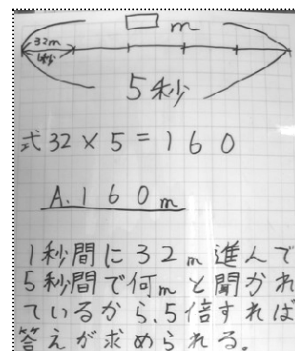 □ m
32m
1秒
5秒
式 32×5=160
A.160m
1秒間に32m進んで
5秒間で何mと聞かれ
ているから、5倍すれば
答えが求められる。